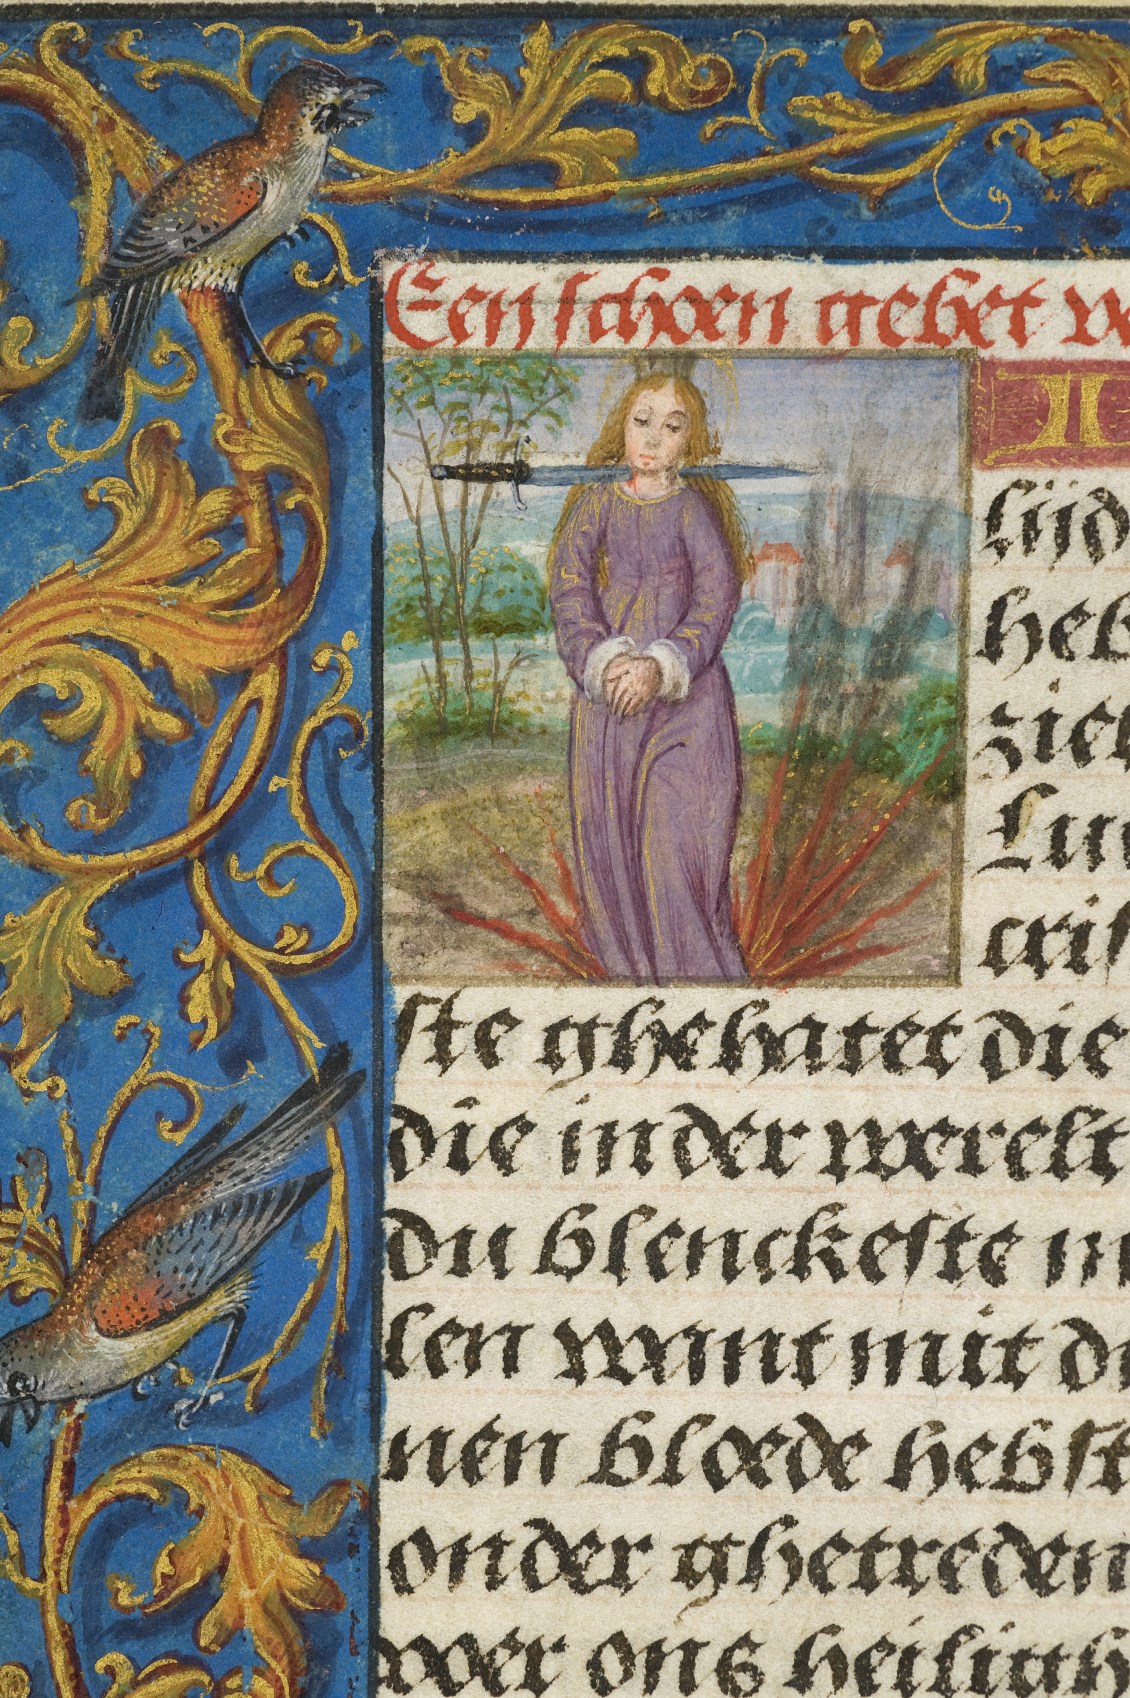 Een schoen gebet v
N
lijd
heb
ziel
Lu
cris
ste ghehatet die
die in der werelt
du blenckeste in
len want mit di
nen bloede hebst
onder ghetreden
wer ons heiligh